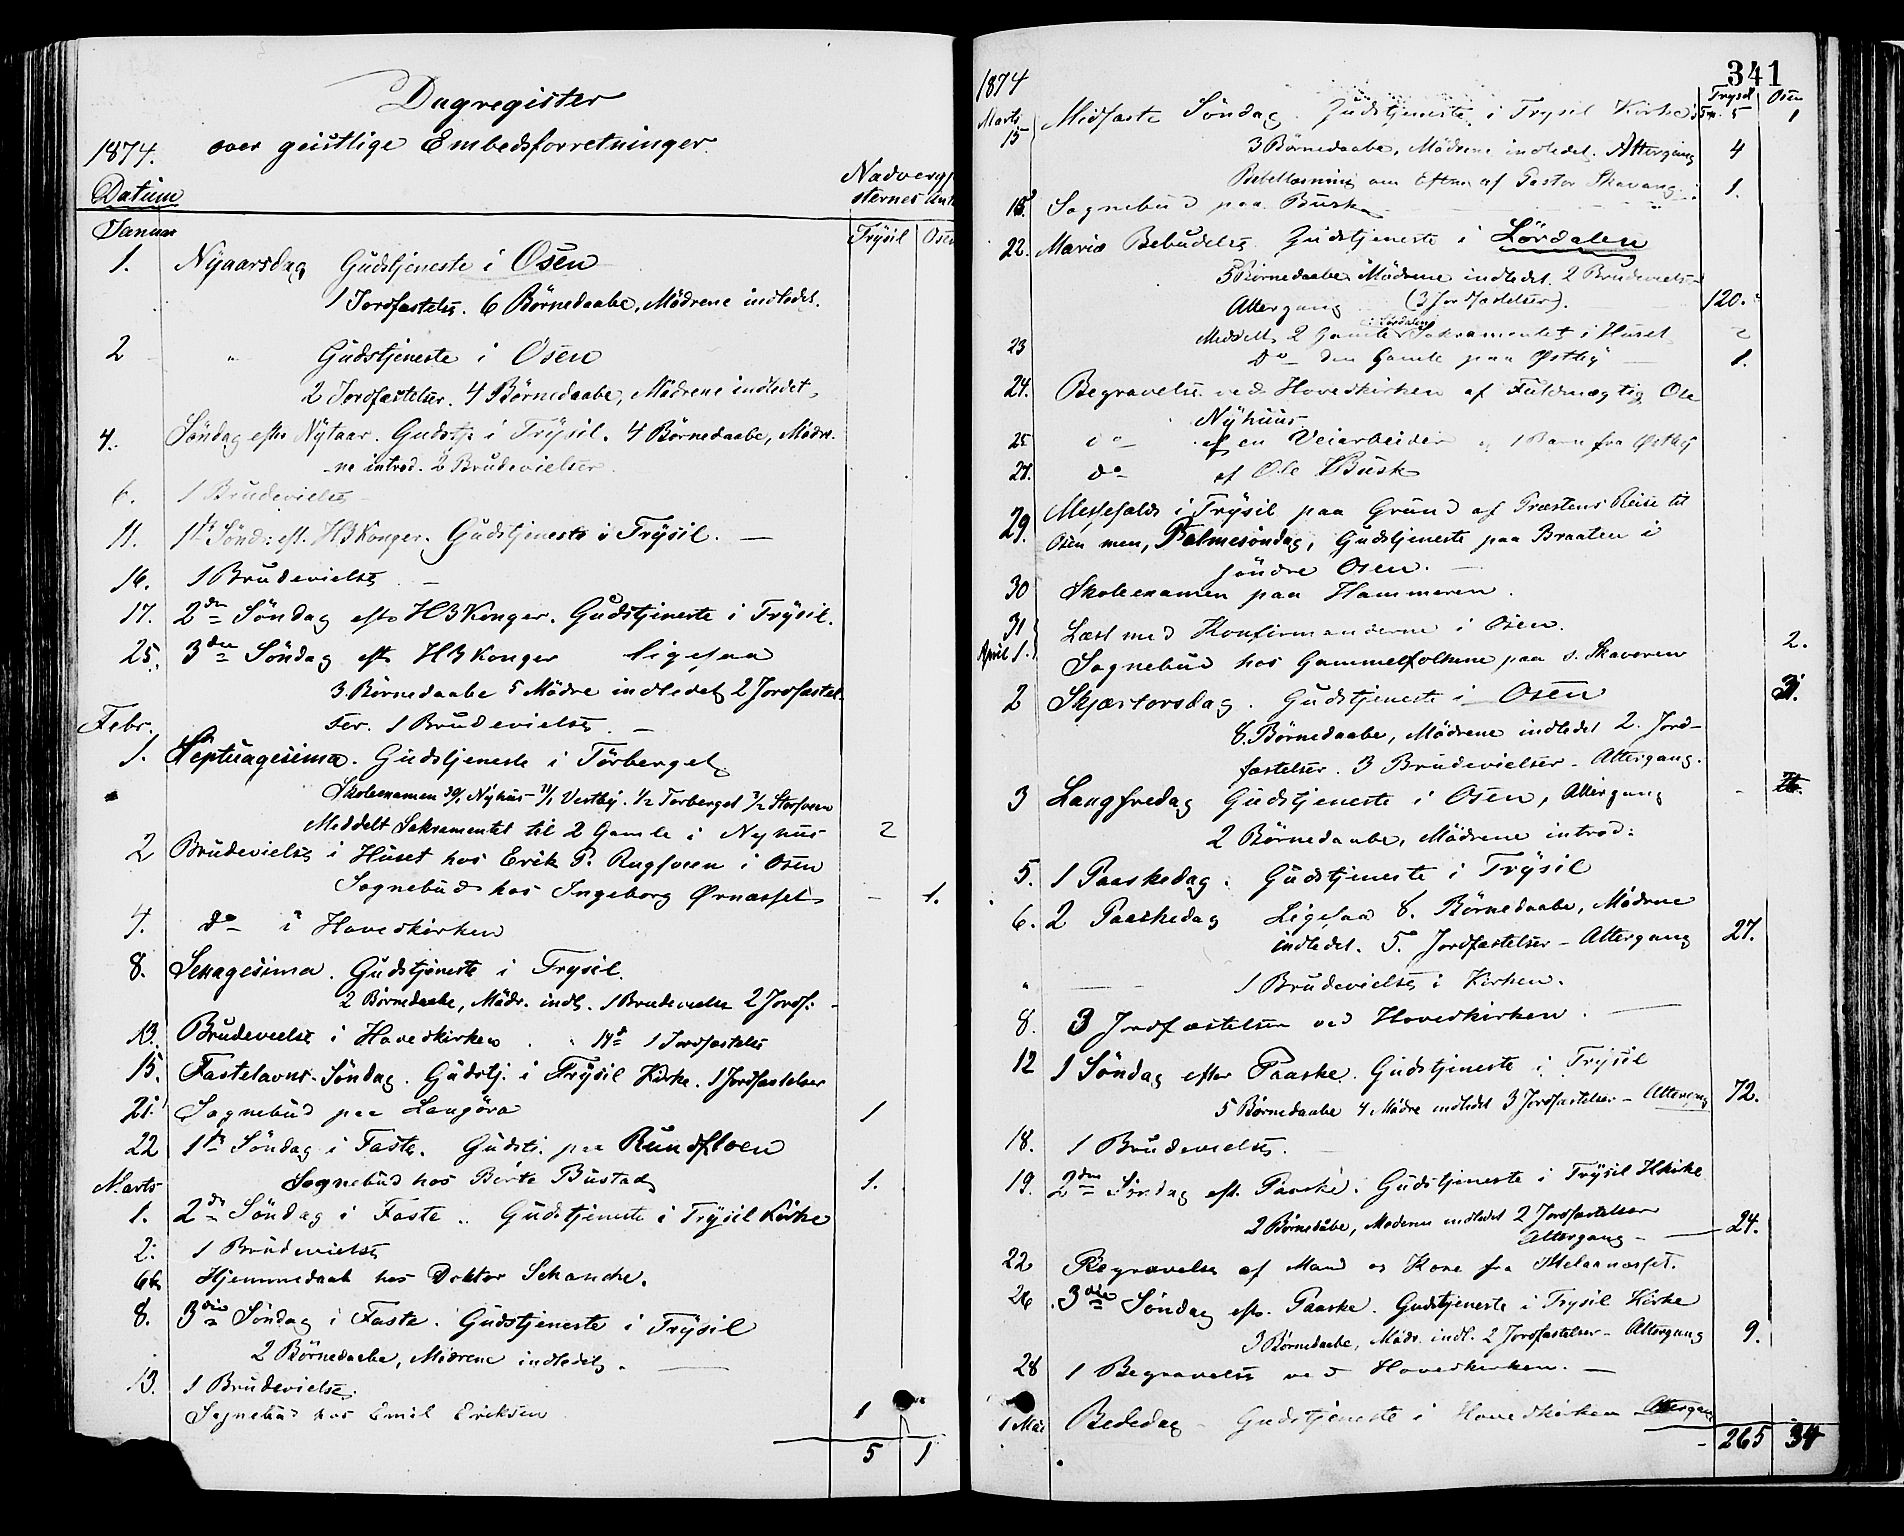 Dagregister
1874. over geistlige Embedsforretninger.
Datum Nadvergj
sternes Ant
Januar Trÿsil Osen
1. Nÿaarsdag Gudstjeneste i Osen
1 Jordfastelse. 6 Börnedaabe, Mödrene indledet.
2 " Gudstjeneste i Osen
2 Jordfastelser. 4 Börnedaabe, Mödrene indledet
4. Söndag efter Nÿtaar. Gudstje i Trÿsil. 4 Börnedaabe, Mödre-
ne introd. 2 Brudevielser
6. 1 Brudevielse
11. 1ste Sönd: eft. H3Konger. Gudstjeneste i Trÿsil.
16. 1 Brudevielse
17. 2den Söndag eft H3Konger. Gudstjeneste i Trÿsil.
25. 3die Söndag eft H3Konger ligesaa
3 Börnedaabe 5 Mödre indledet 2 Jordfastel-
Febr. ser. 1 Brudevielse
1. Septuagesima. Gudstjeneste i Törberget
Skoleexamen 30/1 Nÿhus 31/1 Vestbÿ. 1/2 Törberget 3/2 Storfoen
Meddelt Sakramentet til 2 Gamle i Nÿhus 2
2 Brudevielse i Huset hos Erik P. Rugfoen i Osen
Sognebud hos Ingeborg Ørnæsset - 1.
4. do i Hovedkirken
8. Sexagesima. Gudstjeneste i Trysil.
2 Börnedaabe, Mödr. indl. 1 Brudevielse 2 Jordf:
13. Brudevielse i Hovedkirken 14d 1 Jordfastelse
15. Fastelavns-Söndag. Gudstj. i Trÿsil Kirke. 1 Jordfastelser
21. Sognebud paa Langöra 1
22 1ste Söndag i Faste. Gudstj. paa Rundfloen
Marts Sognebud hos Berte Bustad 1.
1. 2den Söndag i Faste .. Gudstjeneste i Trÿsil Kirke
2. 1 Brudevielse
6te Hjemmedaab hos Doktor Schanche.
8. 3die Söndag i Faste. Gudstjeneste i Trÿsil
2 Börnedaabe, Mödrene indledet.
13. 1 Brudevielse.
Sognebud hos Emil Eriksen 1
5 1
341
1874 Trysil Osen
Marts
15 Midfaste Söndag. Gudstjeneste i Trysil Kirke 5 1
3 Börnedaabe, Mödrene indledet. Altergang 4
Bibellæsning om Eftm af Pastor Skavang. 1.
18. Sognebud paa Busk
22. Mariæ Bebudelse Gudstjeneste i Lördalen
5 Börnedaabe Mödrene indledet. 2 Brudeviels-
Altergang (3 Jordfastelser). 120.
i Lördalen
23 Meddelt 2 Gamle Sakramentet i Huset 2
Do den Gamle paa Østbÿ 1.
24. Begravelse ved Hovedkirken af Fuldmægtig Ole
Nÿhuus
25 do af en Veiarbeider og 1 Barn fra Østbÿ
28. do af Ole Busk
29. Messefald i Trÿsil paa Grund af Præstens Reise til
Osen men, Palmesöndag, Gudstjeneste paa Braaten i
söndre Osen.
30 Skoleexamen paa Hammeren.
31 Læst med Konfirmanderne i Osen.
April 1. Sognebud hos Gammelfolkene paa s. Skaveren 2.
2 Skjærtorsdag. Gudstjeneste i Osen
8. Börnedaabe, Mödrene indledet 2. Jord-
fastelser. 3 Brudevielser - Altergang.
3 Langfredag Gudstjeneste i Osen, Altergang
2 Börnedaabe, Mödrene introd:
5. 1 Paaskedag. Gudstjeneste i Trÿsil
6. 2 Paaskedag Ligesaa 8. Börnedaabe, Mödrene
indledet. 5. Jordfastelser - Altergang 27.
" 1 Brudevielse i Kirken.
8. 3 Jordfastelser ved Hovedkirken.
12 1 Söndag efter Paaske. Gudstjeneste i Trÿsil
5 Börnedaabe 4 Mödre indledet 3 Jordfastelser - Altergang 72.
18. 1 Brudevielse.
19. 2den Söndag eft. Paaske. Gudstjeneste i Trÿsil Hkirke
2 Börnedaabe, Mödrene indledet 2 Jordfastelser
Altergang - 24.
22 Begravelse af Mand og Kone fra Melaanæsset.
26 3die Söndag eft. Paaske. Gudstjeneste i Trysil Kirke
3 Börnedaabe, Mödr. indl. 2 Jordfastelser - Altergang 9.
28 1 Begravelse ved Hovedkirken.
1 Mai Bededag - Gudstjeneste i Hovedkirken Altergang
265 34